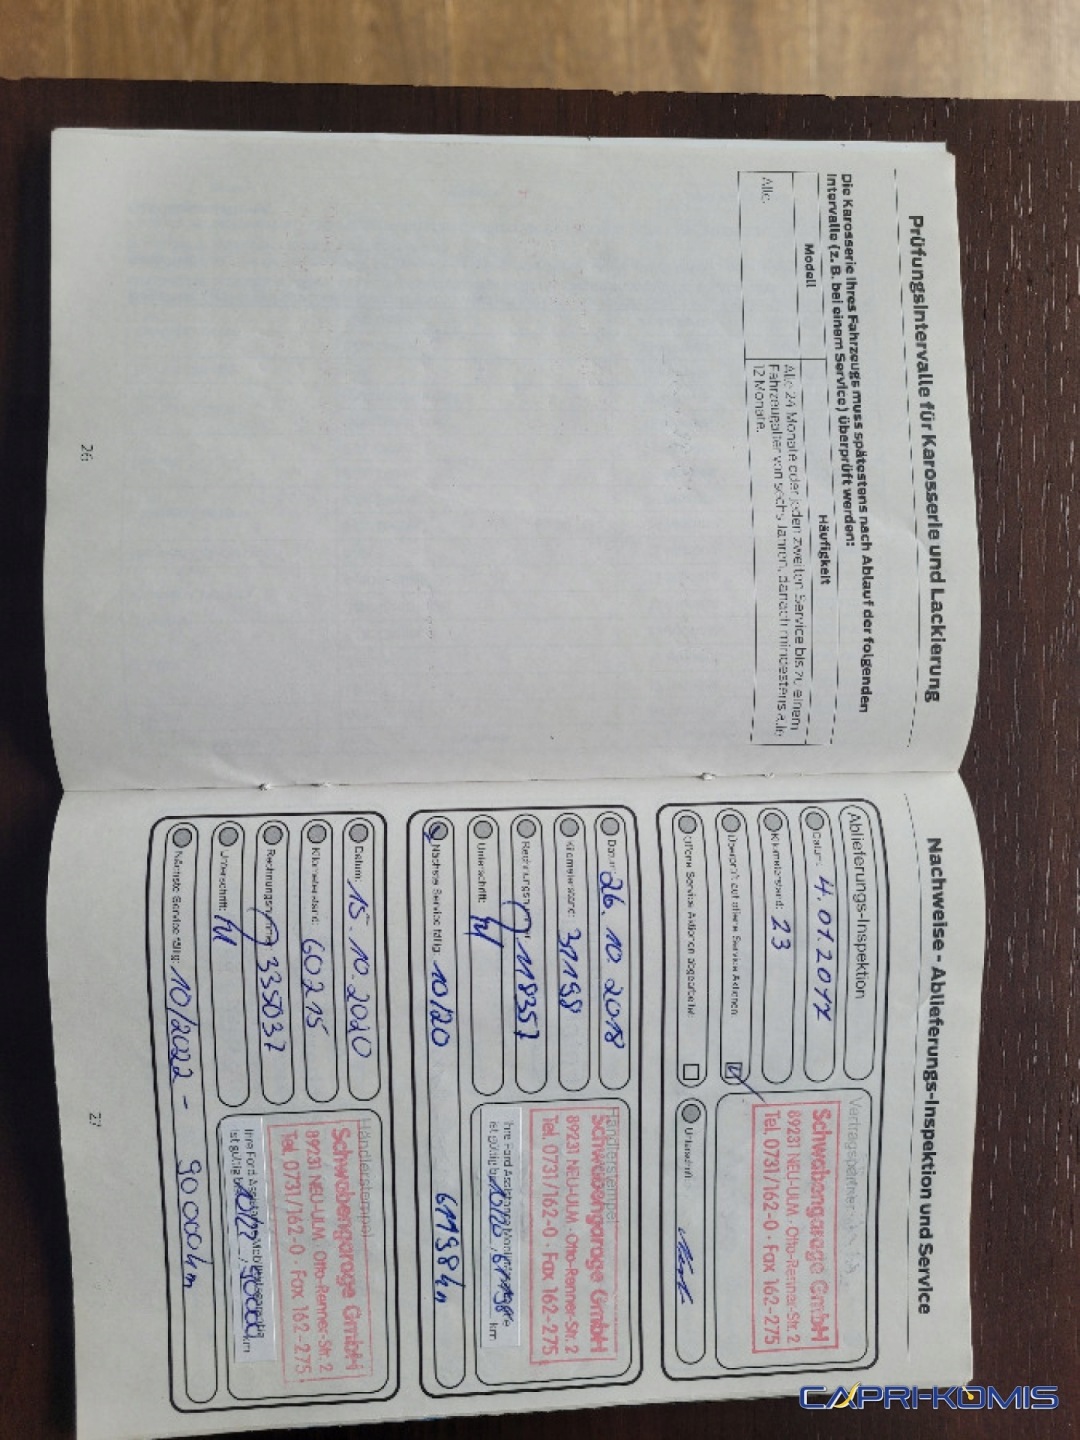 Prüfungsintervalle für Karosserie und Lackierung
Die Karosserie Ihres Fahrzeugs muss spätestens nach Ablauf der folgenden
Intervalle (z. B. bei einem Service) überprüft werden:
Modell
Häufigkeit
Alle.
Alle 24 Monate oder jeden zweiten Service bis zu einem
Fahrzeugalter von sechs Jahren, danach mindestens alle
12 Monate.
26
Nachweise - Ablieferungs-Inspektion und Service
Ablieferungs-Inspektion
Datum: 4.01.2017
Kilometerstand: 23
Überprüft auf offene Service Aktionen:
Offene Service Aktionen abgearbeitet:
Vertragspartner
Schwabengarage GmbH
89231 NEU-ULM · Otto-Renner-Str. 2
Tel. 0731/162-0 · Fax 162-275
Unterschrift:
Datum: 26.10.2018
Kilometerstand: 31198
Rechnungsnummer: 118357
Unterschrift:
Nächste Service fällig: 10/20 61198km
Händlerstempel
Schwabengarage GmbH
89231 NEU-ULM · Otto-Renner-Str. 2
Tel. 0731/162-0 · Fax 162-275
Ihre Ford Assistance Mobilitätsgarantie
ist gültig bis 10/20, 61198 km
Datum: 15.10.2020
Kilometerstand: 60215
Rechnungsnummer: 335037
Unterschrift:
Nächste Service fällig: 10/2022 - 90000km
Händlerstempel
Schwabengarage GmbH
89231 NEU-ULM · Otto-Renner-Str. 2
Tel. 0731/162-0 · Fax 162-275
Ihre Ford Assistance Mobilitätsgarantie
ist gültig bis 10/22, 90000 km
27
CAPRI-KOMIS